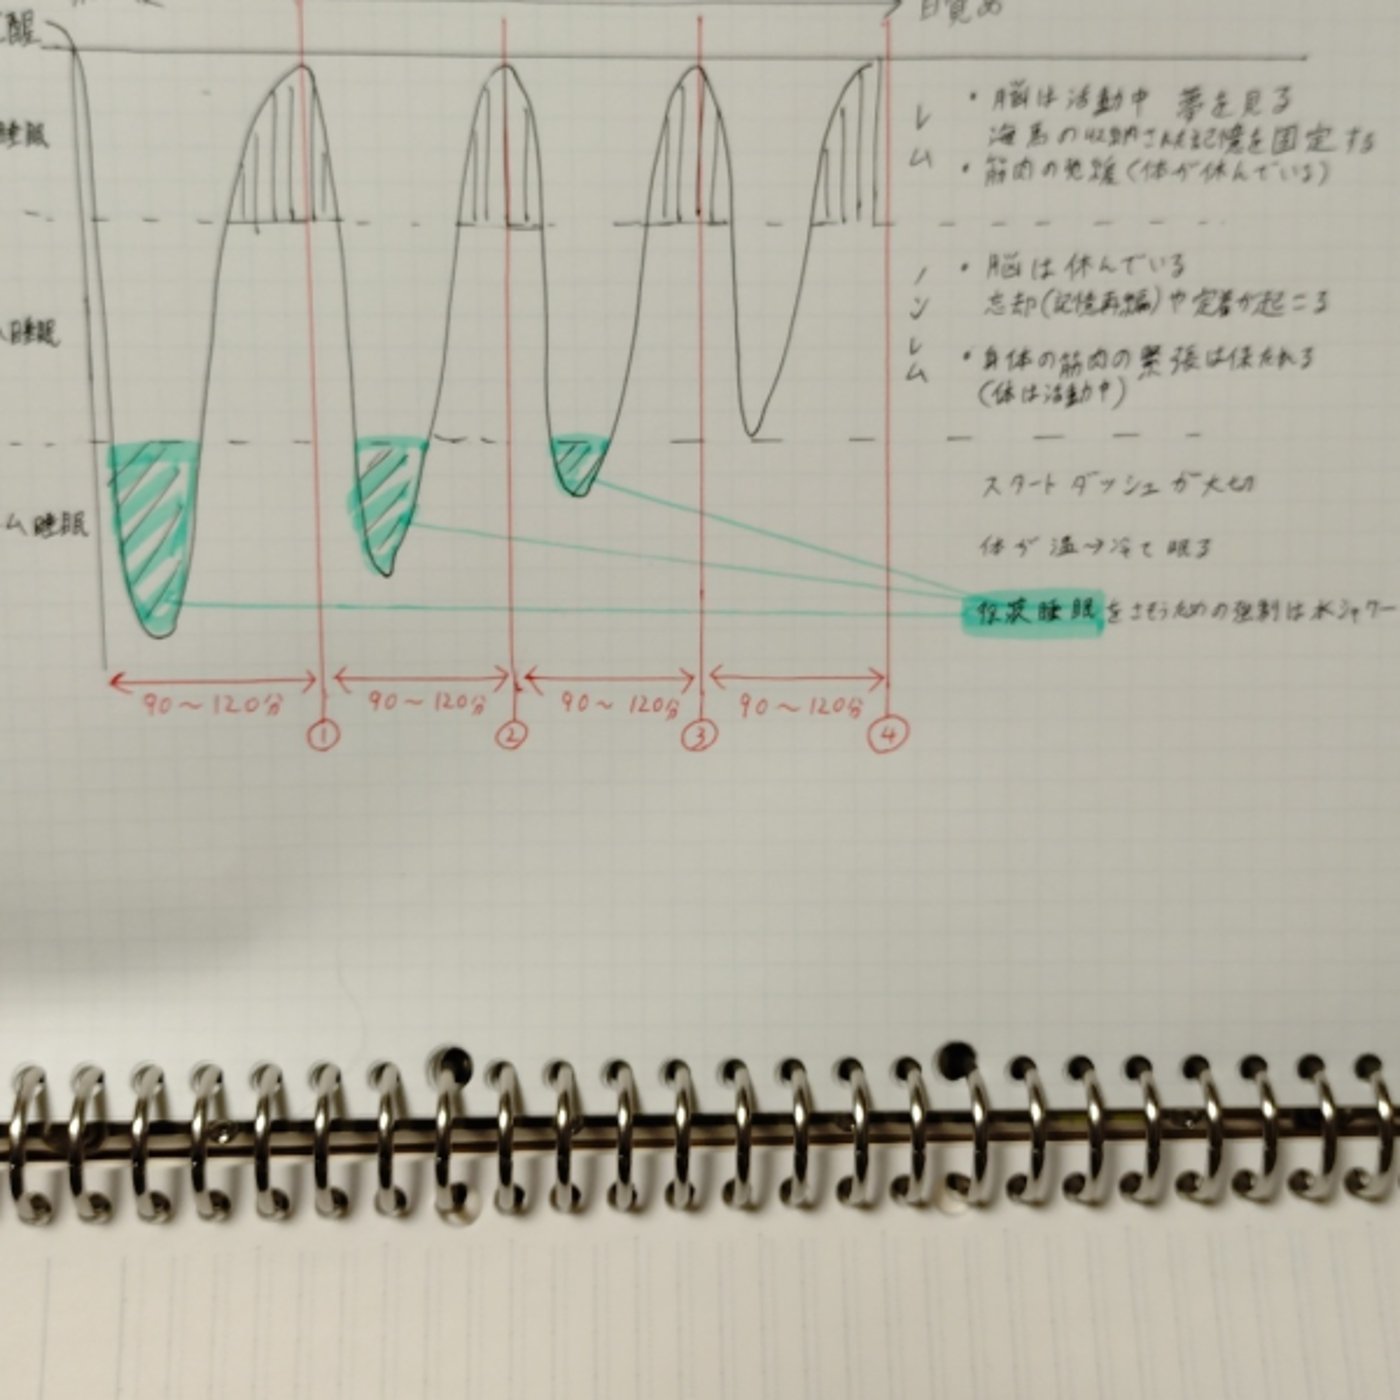 醒
目覚め
睡眠
レム
・脳は活動中 夢を見る
海馬の収納された記憶を固定する
・筋肉の弛緩(体が休んでいる)
ム睡眠
ノンレム
・脳は休んでいる
忘却(記憶再編)や定着が起こる
・身体の筋肉の緊張は保たれる
(体は活動中)
ム睡眠
スタートダッシュが大切
体が温→冷で眠る
徐波睡眠をさそうための強制は水シャワー
90～120分
90～120分
90～120分
90～120分
①
②
③
④